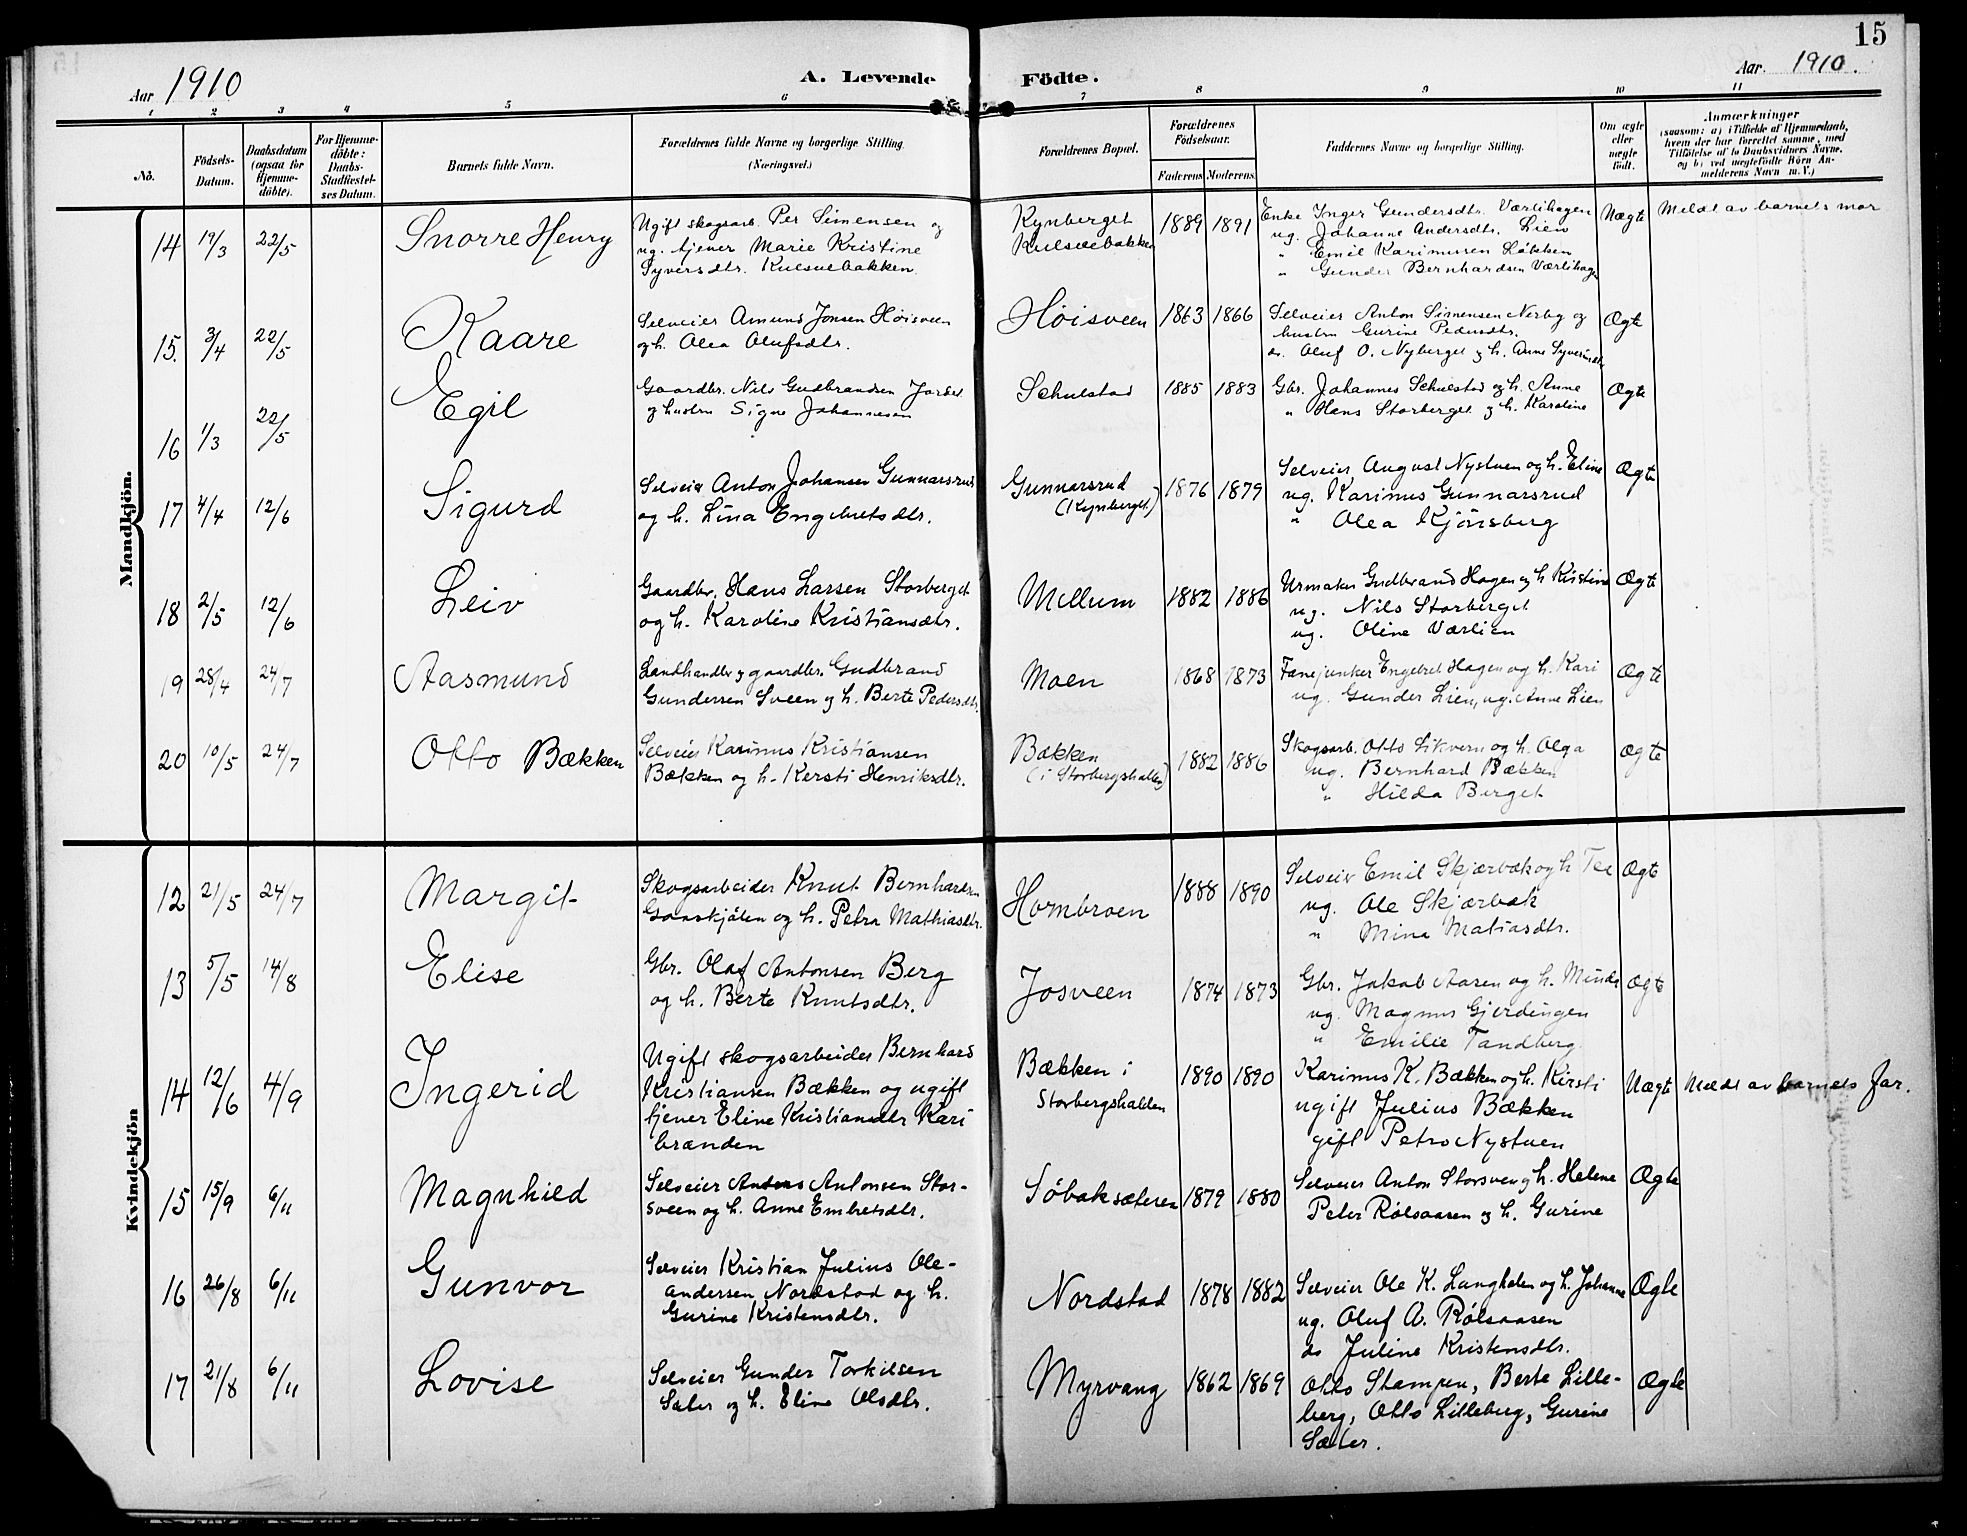 15
Aar 1910
A. Levende Födte.
Aar. 1910.
1 2 3 4 5 6 7 8 9 10 11
No.
Födsels-
Datum.
Daabsdatum
(ogsaa for
Hjemme-
döbte).
For Hjemme-
döbte:
Daabs-
Stadfæstel-
ses Datum.
Barnets fulde Navn.
Forældrenes fulde Navne og borgerlige Stilling.
(Næringsvei.)
Forældrenes Bopæl.
Forældrenes
Födselsaar.
Faderens Moderens
Faddernes Navne og borgerlige Stilling.
Om ægte
eller
uægte
födt.
Anmærkninger
(saasom: a) i Tilfælde af Hjemmedaab,
hvem der har forrettet samme, med
Tilföielse af to Daabsvidners Navne,
og b) ved uægtefödte Börn An-
melderens Navn m. V.)
Mandkjön.
14 19/3 22/5 Snorre Henry
Ugift skogsarb. Per Simensen og
ug. tjener Marie Kristine
Syversdtr. Kulsvebakken.
Kynberget
Kulsvebakken
1889 1891
Enke Inger Gundersdtr. Værlihagen
ug. Johanne Andersdtr. Lien
" Emil Karimusen Løkken
" Gunder Bernhardsen Værlihagen
Uægte
Meldt av barnets mor
15. 3/4 22/5 Kaare
Selveier Amund Jonsen Høisveen
og h. Olea Olufsdtr.
Høisveen 1863 1866
Selveier Anton Simensen Nerby og
hustru Gurine Pedersdtr.
do. Oluf O. Nyberget og h. Anne Syversdtr
Ægte
16 1/3 22/5 Egil
Gaardbr. Nils Gudbrandsen Jordet
og hustru Signe Johannesen
Schulstad 1885 1883
Gbr. Johannes Schulstad og h. Anne
" Hans Storberget og h. Karoline
Ægte
17 4/4 12/6 Sigurd
Selveier Anton Johansen Gunnarsrud
og h. Lina Engebretsdtr.
Gunnarsrud
(Kynberget)
1876 1879
Selveier August Nystuen og h. Eline
ug. Karimus Gunnarsrud
" Olea Kjønsberg
Ægte
18 2/5 12/6 Leiv
Gaardbr. Hans Larsen Storberget
og h. Karoline Kristiansdtr.
Mellum 1882 1886
Urmaker Gudbrand Hagen og h Kristine
ug. Nils Storberget
ug. Oline Værlien
Ægte
19 28/4 24/7 Aasmund
Landhandler og gaardbr. Gudbrand
Gundersen Sveen og h. Berte Pedersdtr.
Moen 1868 1873
Fanejunker Engebret Hagen og h. Kari
ug. Gunder Lien, ug. Anne Lien
Ægte
20 10/5 24/7 Otto Bækken
Selveier Karimus Kristiansen
Bækken og h. Kersti Henriksdtr.
Bækken
(i Storbergshalden)
1882 1886
Skogsarb. Otto Likvern og h. Olga
ug. Bernhard Bækken
" Hilda Berget
Ægte
Kvindekjön
12 21/5 24/7 Margit
Skogsarbeider Knut Bernhardsen
og h. Petra Mathiasdtr.
Hornbroen 1888 1890
Selveier Emil Skjærbæk og h
ug. Ole Skjærbæk
" Mina Matiasdtr.
Ægte
13 5/5 14/8 Elise
Gbr. Olaf Antonsen Berg
og h. Berte Knutsdtr.
Josveen 1874 1873
Gbr. Jakob Aasen og h. Minda
ug. Magnus Gjerdingen
" Emilie Tandberg
Ægte
14 12/6 4/9 Ingerid
Ugift skogsarbeider Bernhard
Kristiansen Bækken og ugift
tjener Eline Kristiansdtr Kari
brænden
Bækken i
Storbergshalden
1890 1890
Karimus K. Bækken og h. Kirsti
ugift Julius Bækken
gift Petro Nystuen
Uægte
Meldt av barnets far.
15 15/9 6/11 Magnhild
Selveier Anders Antonsen Stor-
sveen og h. Anne Embretsdtr.
Söbaksæteren 1879 1880
Selveier Anton Storsveen og h. Helene
Peter Rølsaasen og h. Gurine
Ægte
16 26/8 6/11 Gunvor
Selveier Kristian Julius Ole-
andersen Nordstad og h.
Gurine Kristensdtr.
Nordstad 1878 1882
Selveier Ole K. Langholen og h. Johanne
ug. Oluf A. Rølsaasen
do Juline Kristensdtr.
Ægte
17 21/8 6/11 Lovise
Selveier Gunder Torkilsen
Sæter og h. Eline Olsdtr.
Myrvang 1862 1869
Otto Stampen, Berte Lille-
berg, Otto Lilleberg, Gurine
Sæter.
Ægte